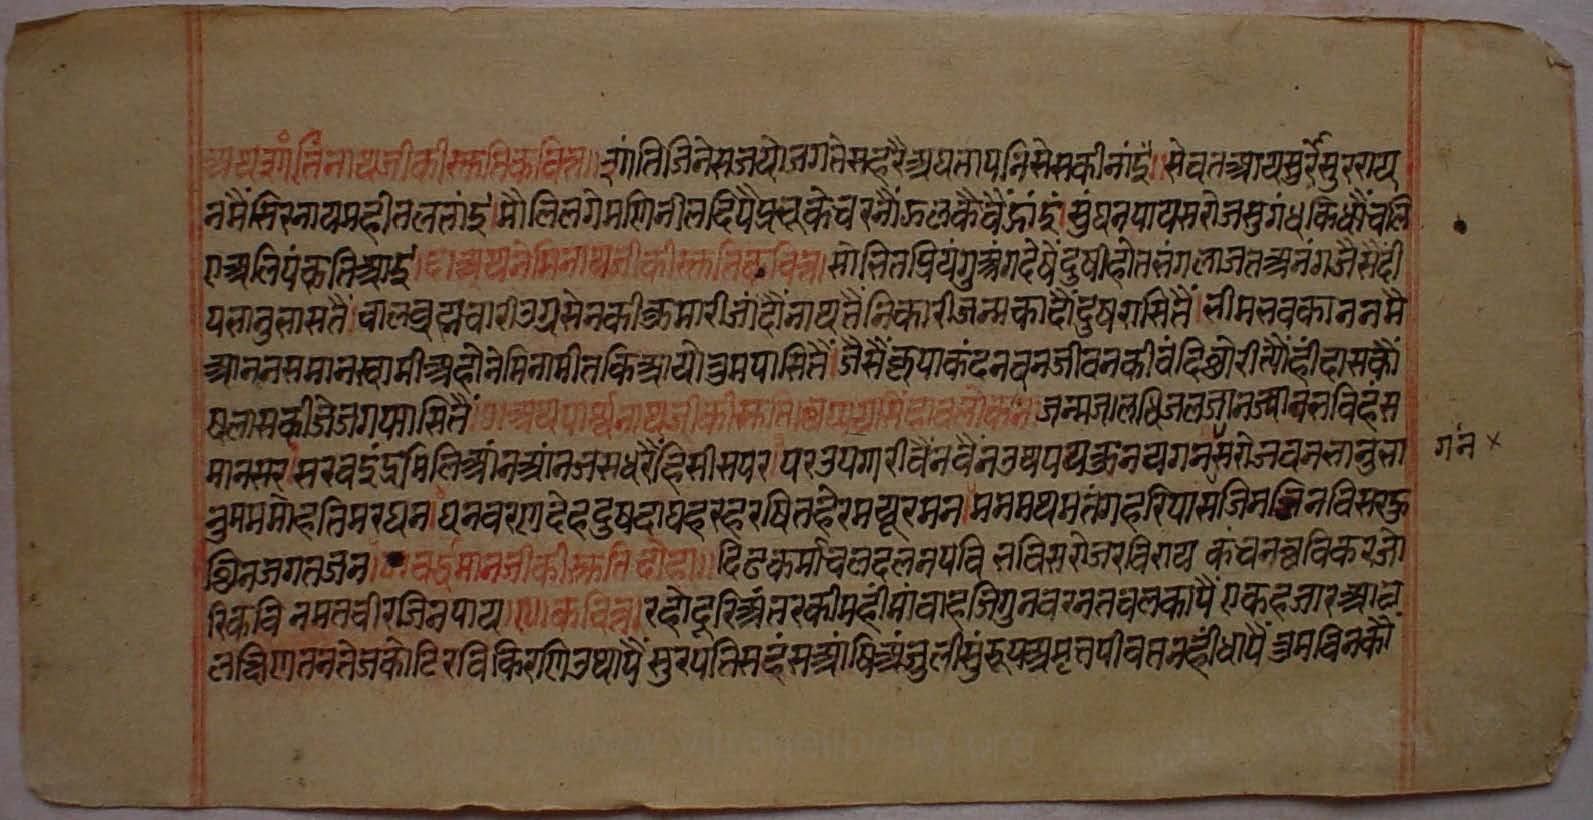 अथ शांतिनाथजीकी स्तुति कवित्त।। शांतिजिनेस जयो जगतेस हरै अघताप निसेसकी नांई। सेवत आय सुरेसुरराय
नमैं सिरनाय महीतलतांई। मौलि लगे मणिनील दिपै प्रभूके चरनौं झलकै वैं झांई। सुंघन पायसरोजसुगंध किधौं चलि
ए अलिपंकति आई। अथ नेमिनाथजीकी स्तुति कवित्त। सोभित प्रियंगु अंग देषैं दुषी होत भंग लाजत अनंग जैसैं दी
प भानुभासतैं। बालब्रह्मचारी उग्रसेनकी कुमारी जादौंनाथ तैं निकारी जन्मकादौंदुषरासितैं। भीमभवकाननमै
आन न समान स्वामी अहो नेमिनामी तकि आयो तुम पासि तैं। जैसैं कृपाकंद नवनजीवनकी वंदि छोरी त्यौं ही दासकौं
षलास कीजे जगपासितैं। अथ पार्श्वनाथजीकी स्तुति। जन्मजालधिजलजान जान जन हंस
मानसर सरव इंद्र मिलि आंन आंन जस धरैं हि सीसपर। पर उपगारी वैंन वैंन उथप कुनय गन। गन सरोजवन भानु भा
नु मम मोहतिमरघन। घनवरण देह दुषदाघहर हरषित हेर मयूरमन। मनमथमतंगहरि पासजिन जिन विसरऊ
छिन जगतजन। वर्द्धमानजीकी स्तुति दोहा।। दिढकर्माचलदलनपवि भविसरोजरविराय कंचनछवि करजो
रि कवि नमत वीरजिनपाय। कवित्त। रहो दूरि अंतरकी महीमां वाहजि गुन वरनत बल कापैं। एक हजार आठ
लछिण तन तेज कोटिरविकिरणि उथापैं सुरपति सहंस आंषिअंजुलीसुं रूपअमृत पीवत नहीं धापैं तुम विन कौं
गन ×
www.vitragelibrary.org